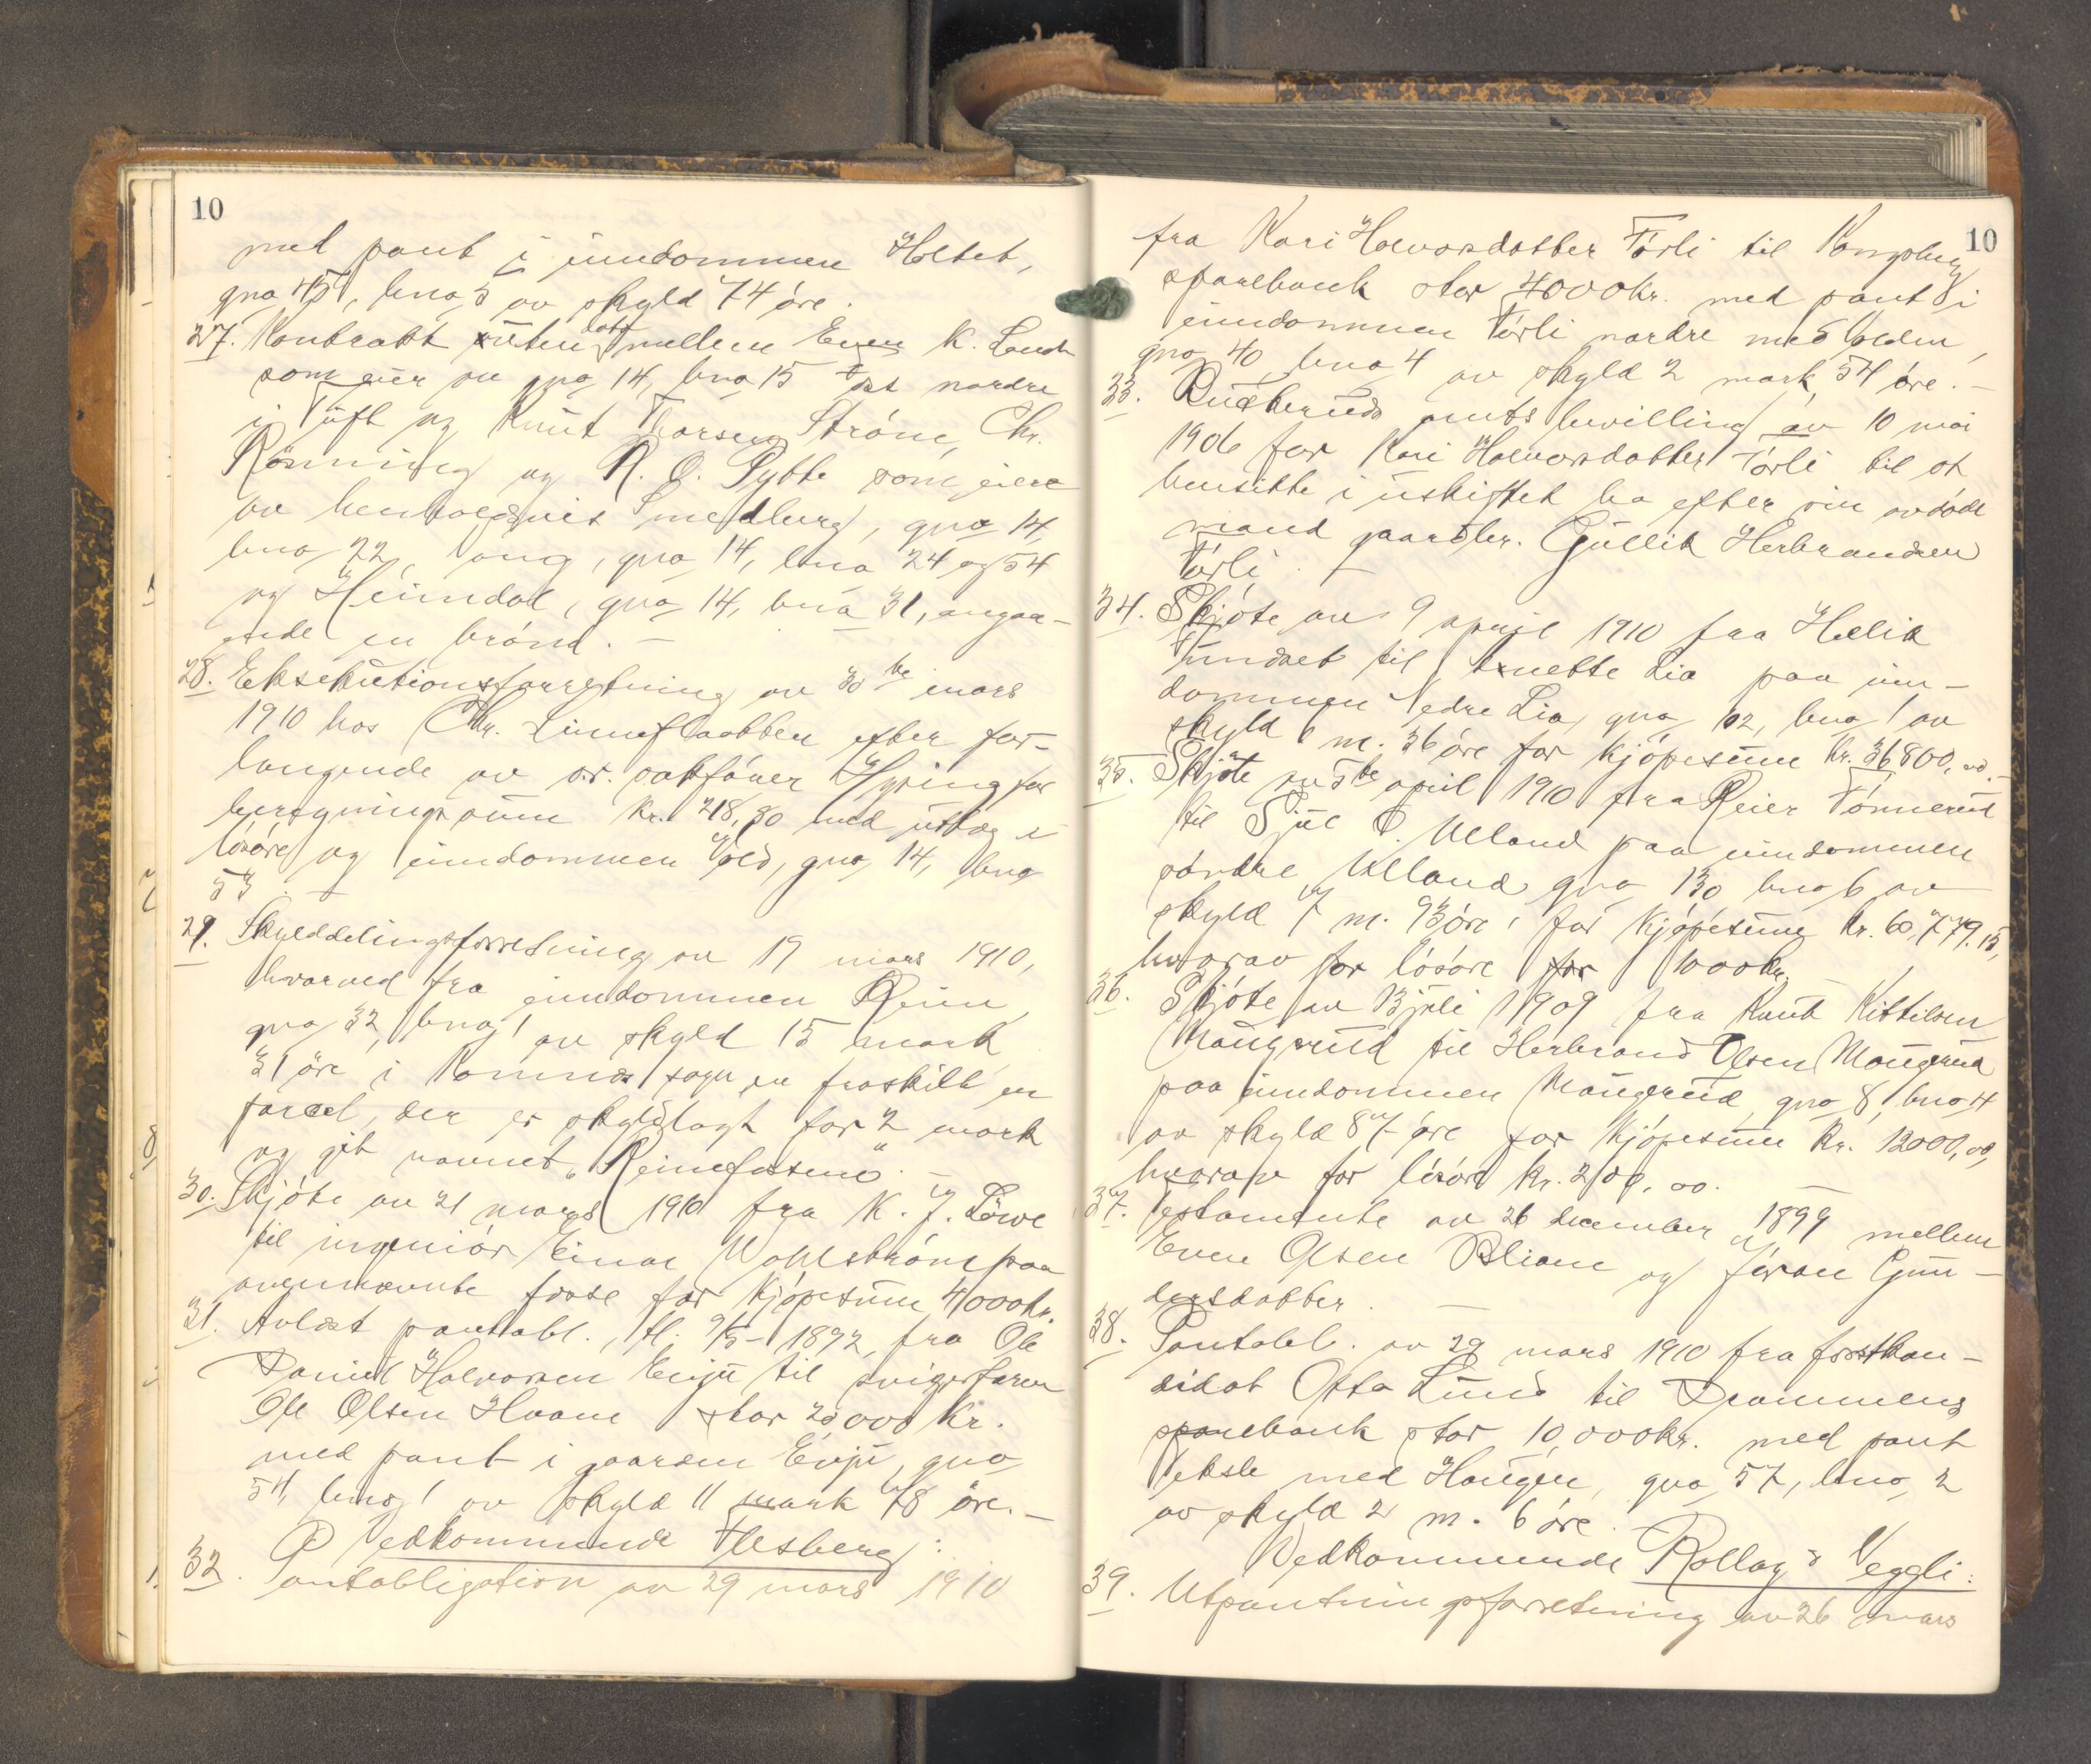 10
med pant i eiendommen Holtet,
gno 45, bno 5 av skyld 74 øre.
27. Kontrakt uten dato mellem Even K. Landt
som eier av gno 14, bno 15 det nordre
i Tuft og Knut Thorsen Strøm, Chr.
Rønning og R. O. Pytte som eiere
av henholdsvis Smedberg, gno 14,
bno 22, gno 14, bno 24 og 54
og Heimdal, gno 14, bno 31, angaa-
ende en brønd. —
28. Eksekutionsforretning av 30te mars
1910 hos Chr. Linneflaatten efter for-
langende av o.r. sakfører Hyring for
beregningssum kr. 218,30 med utlæg i
løsøre og eiendommen Vold, gno 14, bno
53. —
29. Skylddelingsforretning av 19 mars 1910,
hvorved fra eiendommen Reine
gno 32, bno 1 av skyld 15 mark
31 øre i Komnes sogn er fraskilt en
parcel, der er skyldlagt for 2 mark
og git navnet "Reinefossene". —
30. Skjøte av 21 mars 1910 fra K. J. Løwe
til ingeniør Einar Wohlstrøm paa
ovennævnte fosse for kjøpesum 4000 kr.
31. Avlæst pantobl., tl. 9/5-1892, fra Ole
Daniel Halvorsen Evju til svigerfaren
Ole Olsen Hvaane stor 20,000 kr.
med pant i gaarden Evju, gno
54, bno 1 av skyld 11 mark 78 øre. —
Vedkommende Flesberg:
32. Pantobligation av 29 mars 1910
10
fra Kari Halvorsdatter Førli til Kongsberg
sparebank stor 4000 kr. med pant i
eiendommen Førli nordre med Moen,
gno 40, bno 4 av skyld 2 mark 54 øre. —
33. Buskeruds amts bevilling av 10 mai
1906 for Kari Halvorsdatter Førli til at
hensitte i uskiftet bo efter sin avdøde
mand gaardbr. Gullik Herbrandsen
Førli. —
34. Skjøte av 9 april 1910 fra Hellik
til Anette Lia paa eien-
dommen Nedre Lia, gno 102, bno 1 av
skyld 6 m. 36 øre for kjøpesum kr. 36800,00.
35. Skjøte av 5te april 1910 fra Reier Tønnerud
til Sjul O. Ulland paa eiendommen
søndre Ulland gno 130 bno 6 av
skyld 7 m. 93 øre, for kjøpesum kr. 60,779.15,
hvorav for løsøre for 1000 kr.
36. Skjøte av 13 juli 1909 fra Knut Kittilsen
Maugerud til Herbrand Olsen Maugerud
paa eiendommen Maugerud, gno 81 bno 4
av skyld 87 øre for kjøpesum kr. 12000,00,
hvorav for løsøre kr. 200,00. —
37. Testamente av 26 december 1899 mellem
Even Olsen Bliane og Jøran Gun-
dersdatter. —
38. Pantobl. av 29 mars 1910 fra forstkan-
didat Otto Lund til Drammens
sparebank stor 10,000 kr. med pant
i Veksle med Haugen, gno 57, bno 2
av skyld 2 m. 6 øre.
Vedkommende Rollag & Veggli:
39. Utpantningsforretning av 26 mars